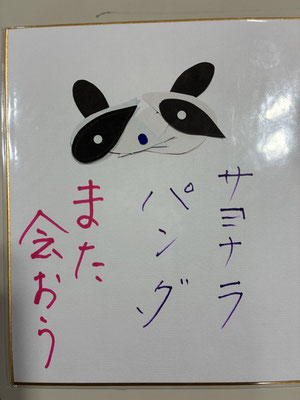 サヨナラ
パンダ
また
会おう